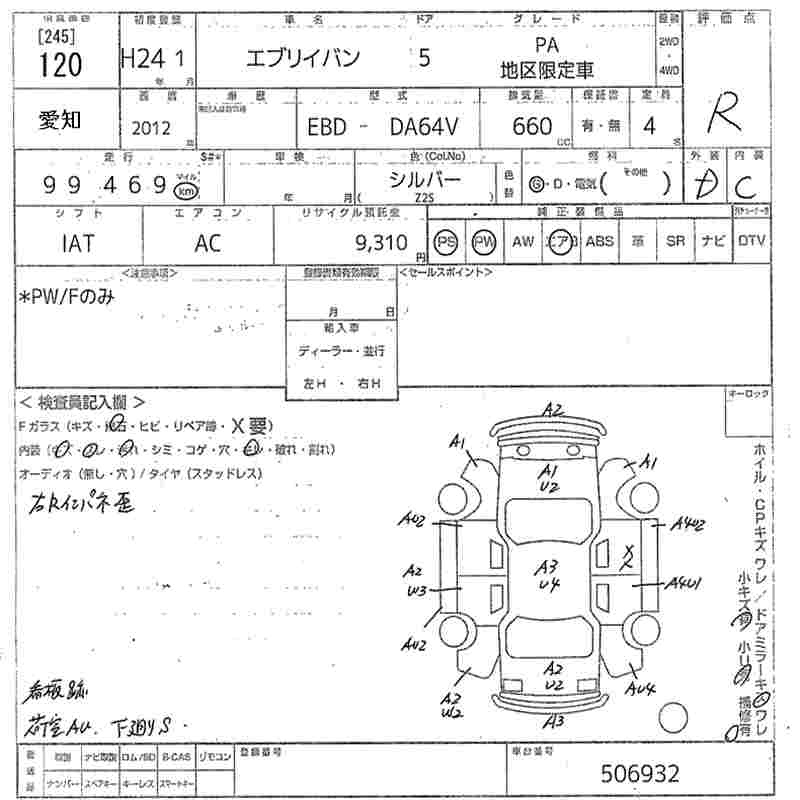 初度登録 車名 ドア グレード 評価点
[245]
120 H24 1 エブリイバン 5 PA 2WD
年 月 地区限定車 4WD
車歴 型式 排気量 保証書 定員
愛知 2012 EBD - DA64V 660 有・無 4 R
年 CC 名
走行 S#* 車検 色(Col.No) 燃料 外装 内装
99469 マイル km 年 月 シルバー 色替 G・D・電気( その他 ) D C
( Z2S )
シフト エアコン リサイクル預託金 純正装備品
IAT AC 9,310円 PS PW AW エアB ABS 革 SR ナビ DTV
<注意事項> 登録書類有効期限 <セールスポイント>
*PW/Fのみ
月 日
輸入車
ディーラー・並行
左H・右H
<検査員記入欄> キーロック
Fガラス(キズ・飛石・ヒビ・リペア跡・X要)
内装(キズ・ヨレ・汚れ・シミ・コゲ・穴・破れ・割れ)
オーディオ(無し・穴)/タイヤ(スタッドレス)
右Rインパネ歪
A2
A1 A1 A1
U2
AU2 A4U2
A3 XX
A2 U4 A4U1
W3
AU2
A2 A2 AU4
W2 U2
A3
ホイル・CPキズ ワレ/ドアミラーキズ ワレ
小キズ有 小U有 補修有
看板跡
荷室AU. 下廻りS.
取説 ナビ取説 ロム/SD B-CAS リモコン 登録番号 車台番号
ナンバー スペアキー キーレス スマートキー 506932